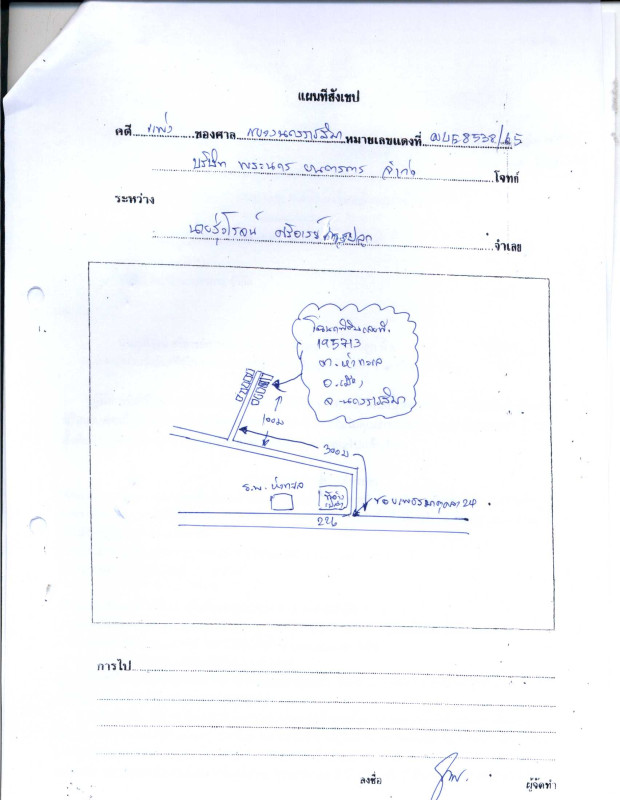 แผนที่สังเขป
คดี แพ่ง ของศาล แขวงนครราชสีมา หมายเลขแดงที่ ผบE8538/65
บริษัท พระนคร ยนตรการ จำกัด โจทก์
ระหว่าง
นายรุ่งโรจน์ จำเลย
โฉนดที่ดินเลขที่
195713
ต.หัวทะเล
อ.เมือง
จ.นครราชสีมา
100ม
300ม
ร.พ.หัวทะเล
ที่ว่าง
เปล่า
ซอยเพชรมาตุคลา 24
226
การไป
ลงชื่อ ผู้จัดทำ